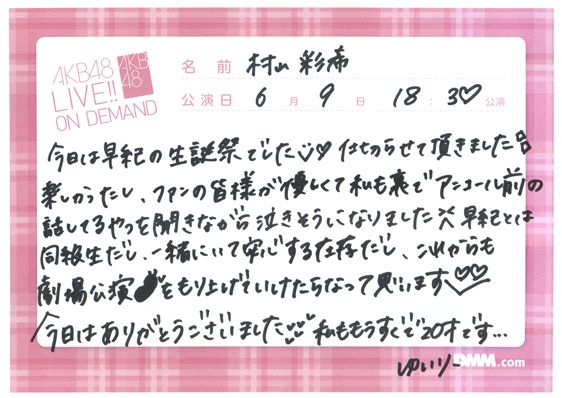 AKB48
LIVE!!
ON DEMAND
AKB
48
名前 村山彩希
公演日 6月9日 18:30♡公演
今日は早紀の生誕祭でした♡仕切らせて頂きました
楽しかったし、ファンの皆様が優しくて私も裏でアンコール前の
話してるやつを聞きながら泣きそうになりました 早紀とは
同級生だし、一緒にいて安心する存在だし、これからも
劇場公演をもり上げていけたらなって思います♡♡
今日はありがとうございました♡♡ 私ももうすぐで20才です...
ゆいりー
DMM.com